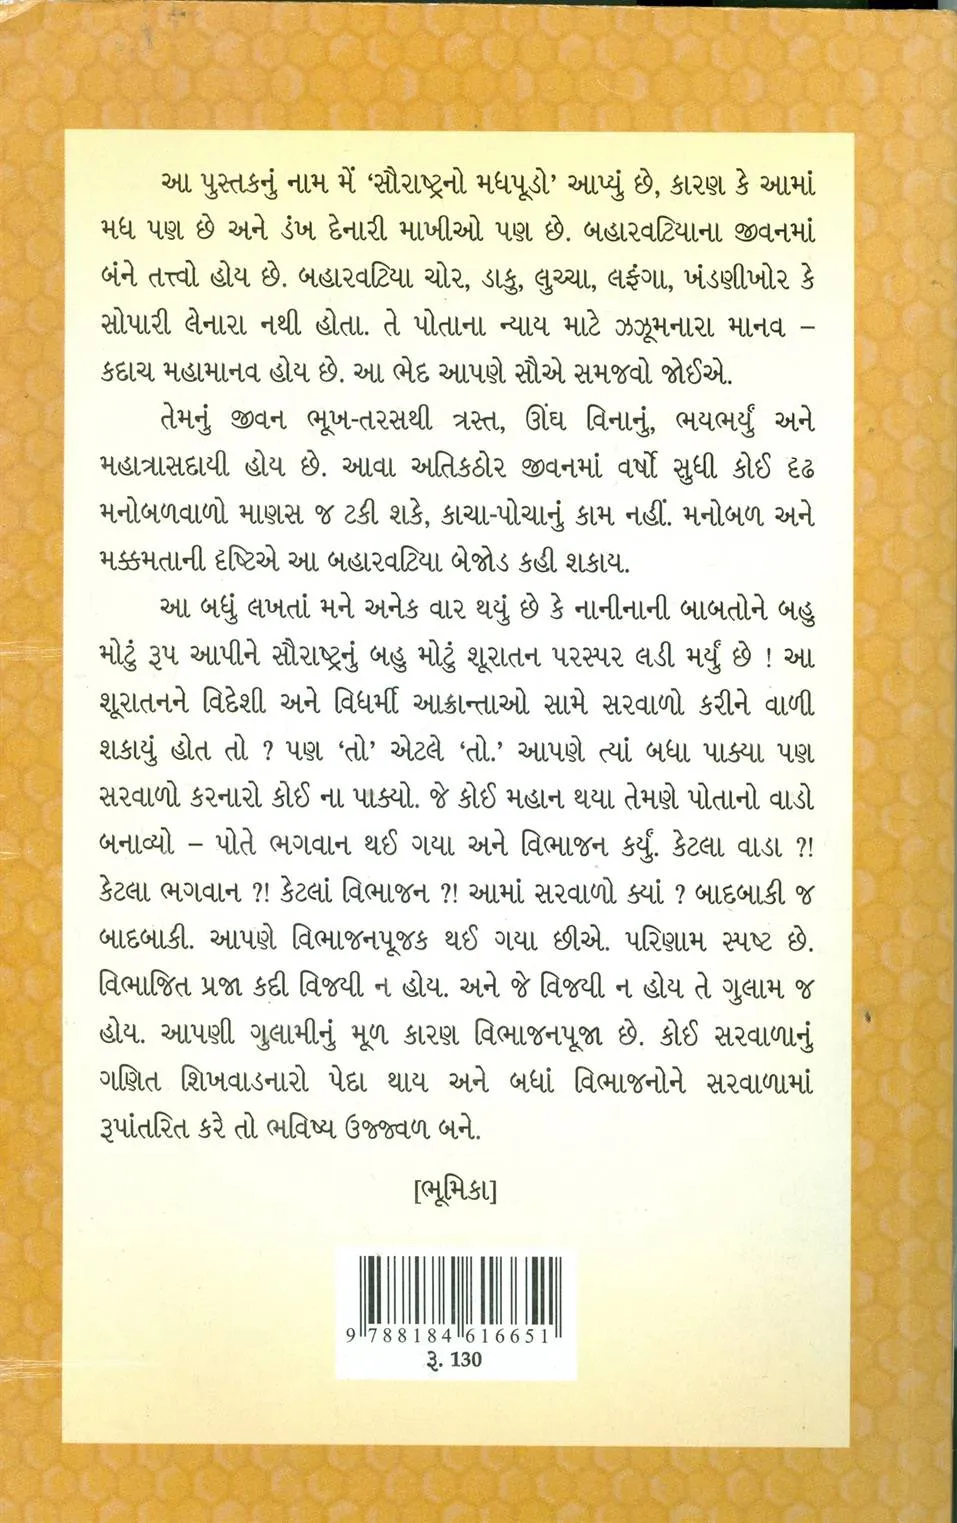 આ પુસ્તકનું નામ મેં ‘સૌરાષ્ટ્રનો મધપૂડો’ આપ્યું છે, કારણ કે આમાં
મધ પણ છે અને ડંખ દેનારી માખીઓ પણ છે. બહારવટિયાના જીવનમાં
બંને તત્ત્વો હોય છે. બહારવટિયા ચોર, ડાકુ, લુચ્ચા, લફંગા, ખંડણીખોર કે
સોપારી લેનારા નથી હોતા. તે પોતાના ન્યાય માટે ઝઝૂમનારા માનવ –
કદાચ મહામાનવ હોય છે. આ ભેદ આપણે સૌએ સમજવો જોઈએ.
તેમનું જીવન ભૂખ-તરસથી ત્રસ્ત, ઊંઘ વિનાનું, ભયભર્યું અને
મહાત્રાસદાયી હોય છે. આવા અતિકઠોર જીવનમાં વર્ષો સુધી કોઈ દૃઢ
મનોબળવાળો માણસ જ ટકી શકે, કાચા-પોચાનું કામ નહીં. મનોબળ અને
મક્કમતાની દૃષ્ટિએ આ બહારવટિયા બેજોડ કહી શકાય.
આ બધું લખતાં મને અનેક વાર થયું છે કે નાનીનાની બાબતોને બહુ
મોટું રૂપ આપીને સૌરાષ્ટ્રનું બહુ મોટું શૂરાતન પરસ્પર લડી મર્યું છે ! આ
શૂરાતનને વિદેશી અને વિધર્મી આક્રાન્તાઓ સામે સરવાળો કરીને વાળી
શકાયું હોત તો ? પણ ‘તો’ એટલે ‘તો.’ આપણે ત્યાં બધા પાક્યા પણ
સરવાળો કરનારો કોઈ ના પાક્યો. જે કોઈ મહાન થયા તેમણે પોતાનો વાડો
બનાવ્યો – પોતે ભગવાન થઈ ગયા અને વિભાજન કર્યું. કેટલા વાડા ?!
કેટલા ભગવાન ?! કેટલાં વિભાજન ?! આમાં સરવાળો ક્યાં ? બાદબાકી જ
બાદબાકી. આપણે વિભાજનપૂજક થઈ ગયા છીએ. પરિણામ સ્પષ્ટ છે.
વિભાજિત પ્રજા કદી વિજયી ન હોય. અને જે વિજયી ન હોય તે ગુલામ જ
હોય. આપણી ગુલામીનું મૂળ કારણ વિભાજનપૂજા છે. કોઈ સરવાળાનું
ગણિત શિખવાડનારો પેદા થાય અને બધાં વિભાજનોને સરવાળામાં
રૂપાંતરિત કરે તો ભવિષ્ય ઉજ્જ્વળ બને.
[ભૂમિકા]
9 788184 616651
રૂ. 130